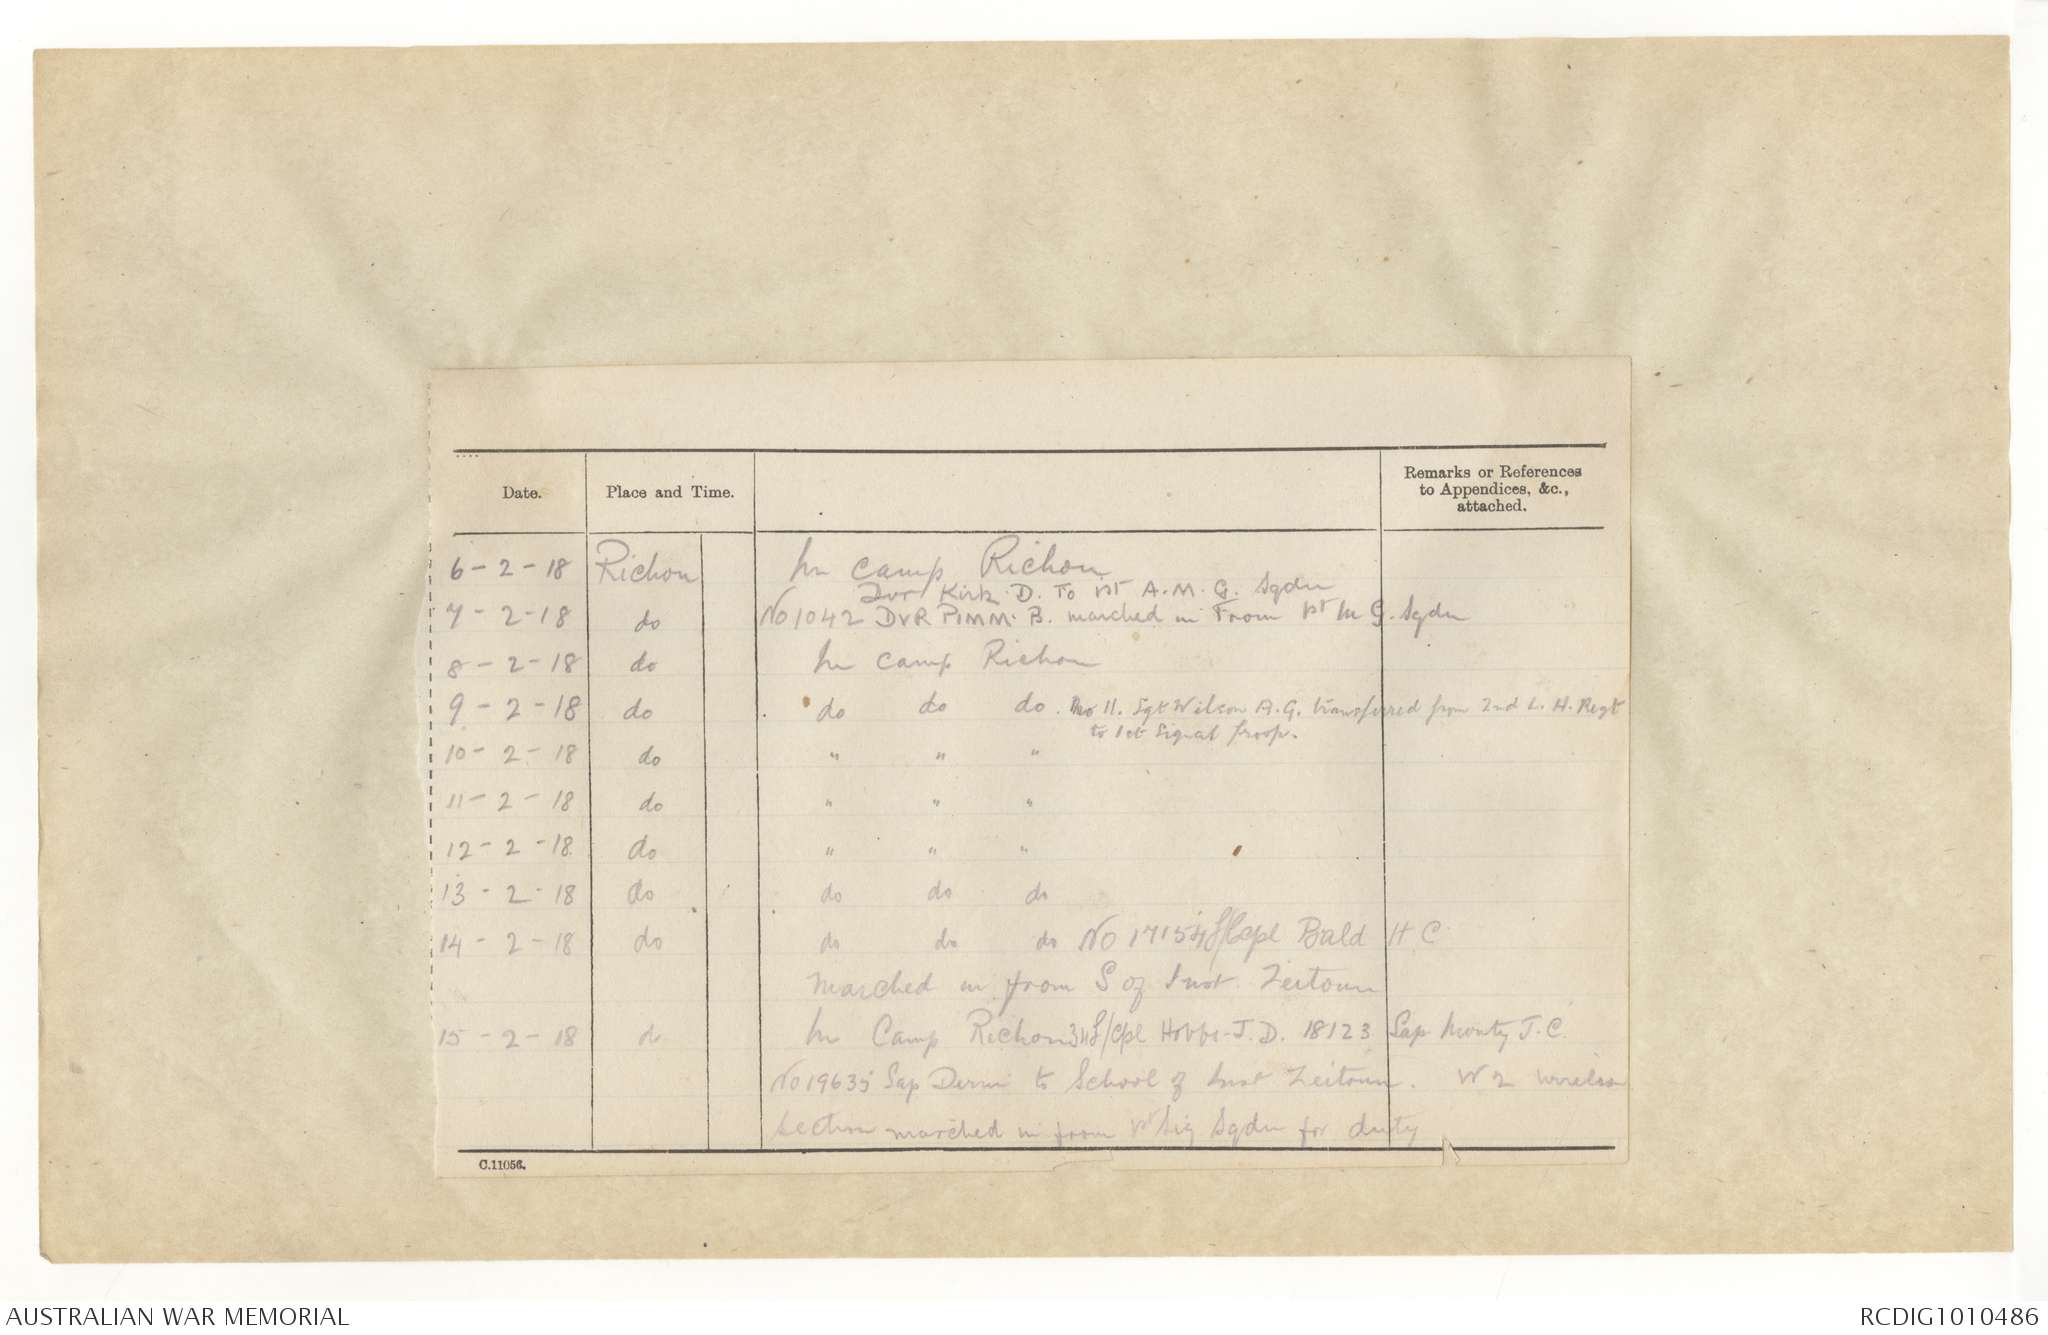 Date.
Place and Time.
Remarks or References
to Appendices, &c.,
attached.
6-2-18 Richon In camp Richon
Dvr Kirk. D. To 1st A.M.G. Sqdn
7-2-18 do No 1042 DvR PiMM. B. marched in From 1st M G. Sqdn
8-2-18 do In camp Richon
9-2-18 do do do do. No 11. Sgt Wilson A.G. transferred from 2nd L. H. Regt
to 1st Signal Troop.
10-2-18 do " " "
11-2-18 do " " "
12-2-18 do " " "
13-2-18 do do do do
14-2-18 do do do do No 17154 L/Cpl Bald H C
Marched in from S of Inst. Zeitoun
15-2-18 do In Camp Richon 34 L/Cpl Hobbs-J.D. 18123 Sap J.C.
No 19635 Sap to School of Inst Zeitoun. W 2 wireless
section marched in from 1st Sig Sqdn for duty
C.11056.
AUSTRALIAN WAR MEMORIAL
RCDIG1010486